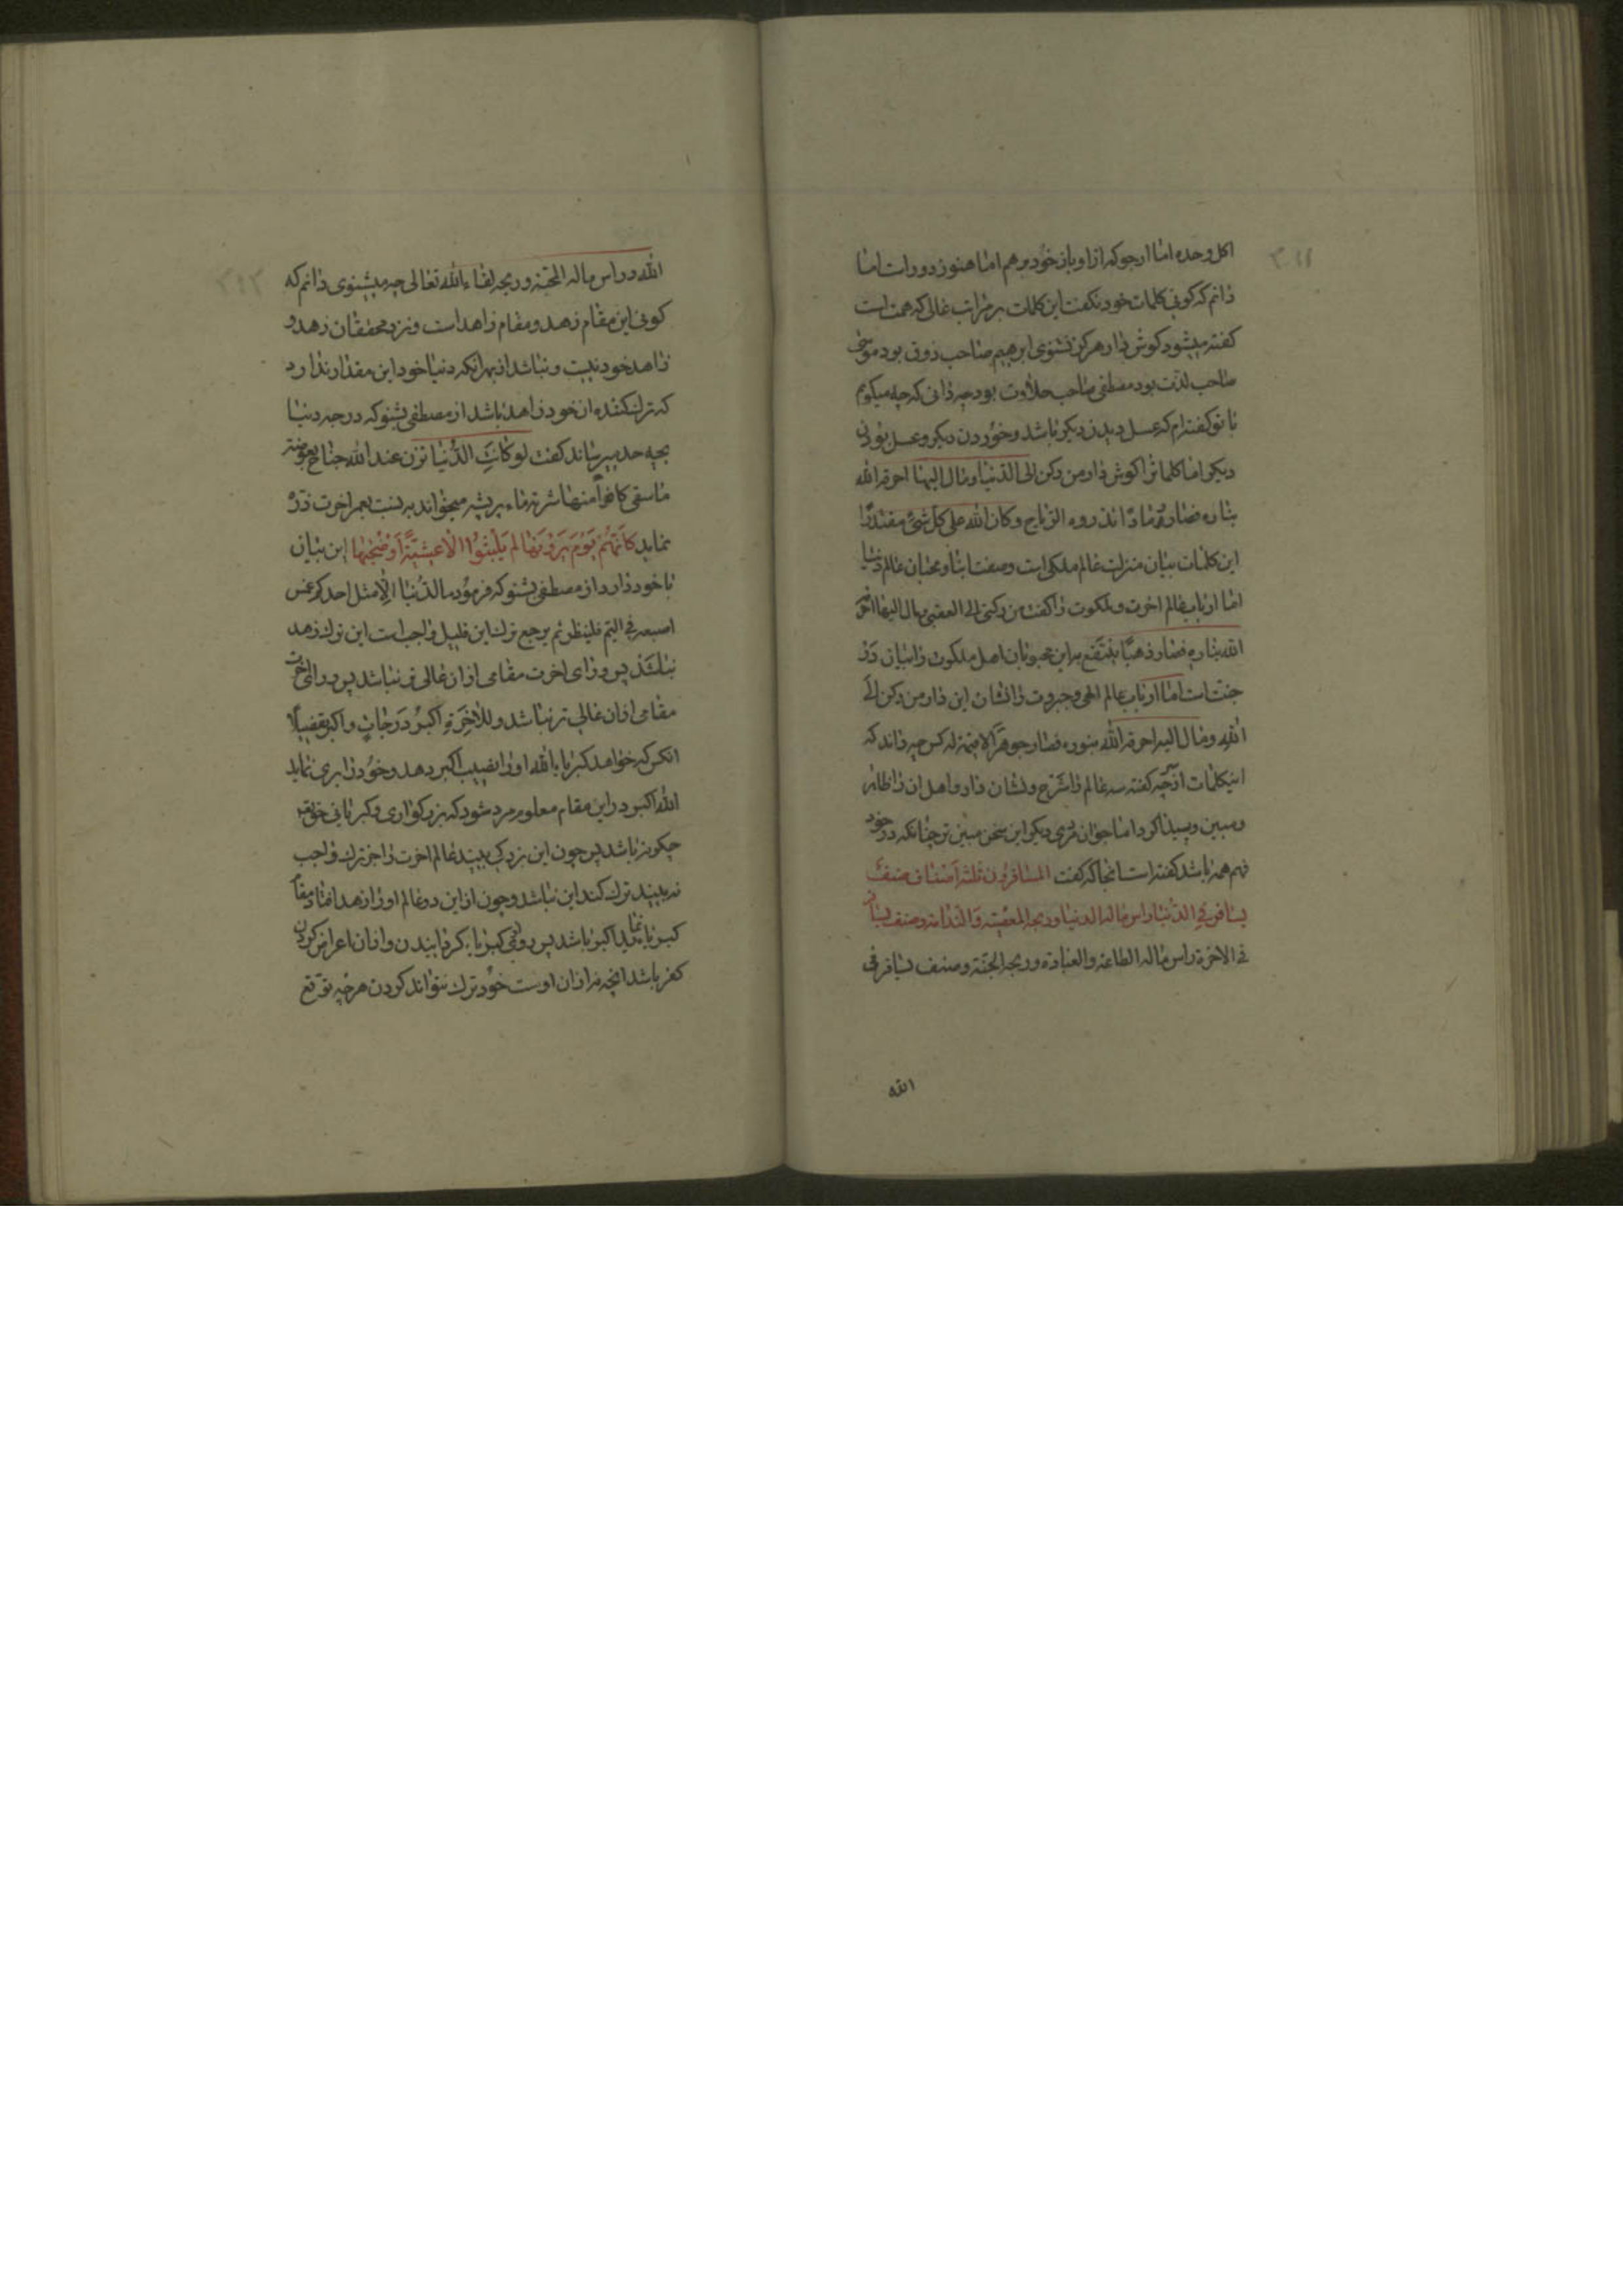 ٣١١
اکل وحده اما ارجو که از او باز خود برهم اما هنوز دور است اما
دانم که کوئی کلمات خود نکفت این کلمات بر مراتب عالی که همت است
کفته میشود کوش دار هرکز نشنوی ابرهیم صاحب ذوق بود موسی
صاحب لذت بود مصطفی صاحب حلاوت بود چه دانی که چه میکویم
با تو کفته‌ام که عسل دیدن دیکر باشد و خوردن دیکر و عسل بودن
دیکر اما کلماتی را کوش دار من رکن الی الدنیا ومال الیها احرقه الله
بناره فصار رمادا تذروه الریاح وکان الله علی کل شئ مقتدرا
این کلمات بیان منزلت عالم ملکی است وصفت ابنا و محبان عالم دنیا
اما ارباب عالم اخرت و ملکوت را کفت من رکن الی العقبی ومال الیها احرقه
الله بناره فصار ذهبا ینتفع به این محبوبان اهل ملکوت را بیان در
جنت است اما ارباب عالم الهی و جبروت را نشان این دار من رکن الی
الله ومال الیه احرقه الله بنوره فصار جوهرا لا قیمة له کس چه داند که
اینکلمات ازچه کفته سه عالم را شرح و نشان داد و اهل ان را ظاهر
و مبین و پیدا کرد اما جوان مردی دیکر این سخن مبین تر چنانکه در خود
فهم همه باشد کفته است انجا که کفت المسافرون ثلثة اصناف صنف
یسافر فی الدنیا راس ماله الدنیا وربحه المعصیة والندامة وصنف یسافر
فی الاخرة راس ماله الطاعة والعبادة وربحه الجنة وصنف یسافر فی
الله
٣١٢
الله وراس ماله المحبة وربحه لقاء الله تعالی چه میشنوی دانم که
کوئی این مقام زهد و مقام زاهد است و نزد محققان زهد و
زاهد خود نیست و نباشد از بهر انکه دنیا خود این مقدار ندارد
که ترک کننده ان خود زاهد باشد از مصطفی بشنو که درجه دنیا
بچه حد میرساند کفت لو کانت الدنیا تزن عند الله جناح بعوضة
ما سقی کافرا منها شربة ماء پر پشه میخواند به نسبت بعمر اخرت ذره
نماید کانهم یوم یرونها لم یلبثوا الا عشیة او ضحیها این بیان
با خود دارد از مصطفی بشنو که فرمود ما الدنیا الا مثل احدکم غمس
اصبعه فی الیم فلینظر بم یرجع ترک این قلیل واجب است این ترک زهد
نباشد پس ورای اخرت مقامی ازان عالی تر نباشد پس ورای اخرت
مقامی ازان عالی تر نباشد وللاخرة اکبر درجات واکبر تفضیلا
انکس که خواهد کبریا بالله او را نصیب اکبر دهد و خود را بری نماید
الله اکبر در این مقام معلوم مرد شود که بزرکواری و کبریائی خالق
چکونه باشد پس چون این بزرکی بیند عالم اخرت را جز ترک واجب
نه بیند ترک کند این نباشد و چون از این دو عالم او را زهد افتاد مقام
کبریا نماید اکبر باشد پس روی کبریا بکردانیدن و ازان اعراض کردن
کفر باشد انچه نه ازان اوست خود ترک نتواند کردن هرچه توقع